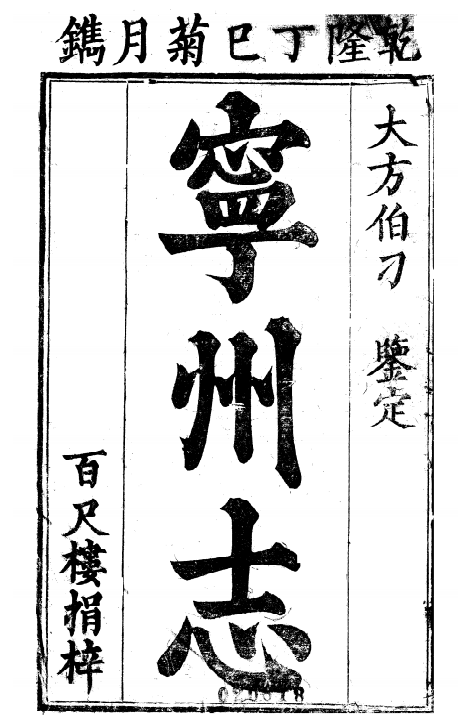 乾隆丁巳菊月鐫
大方伯刁 鑒定
寧州志
百尺樓捐梓